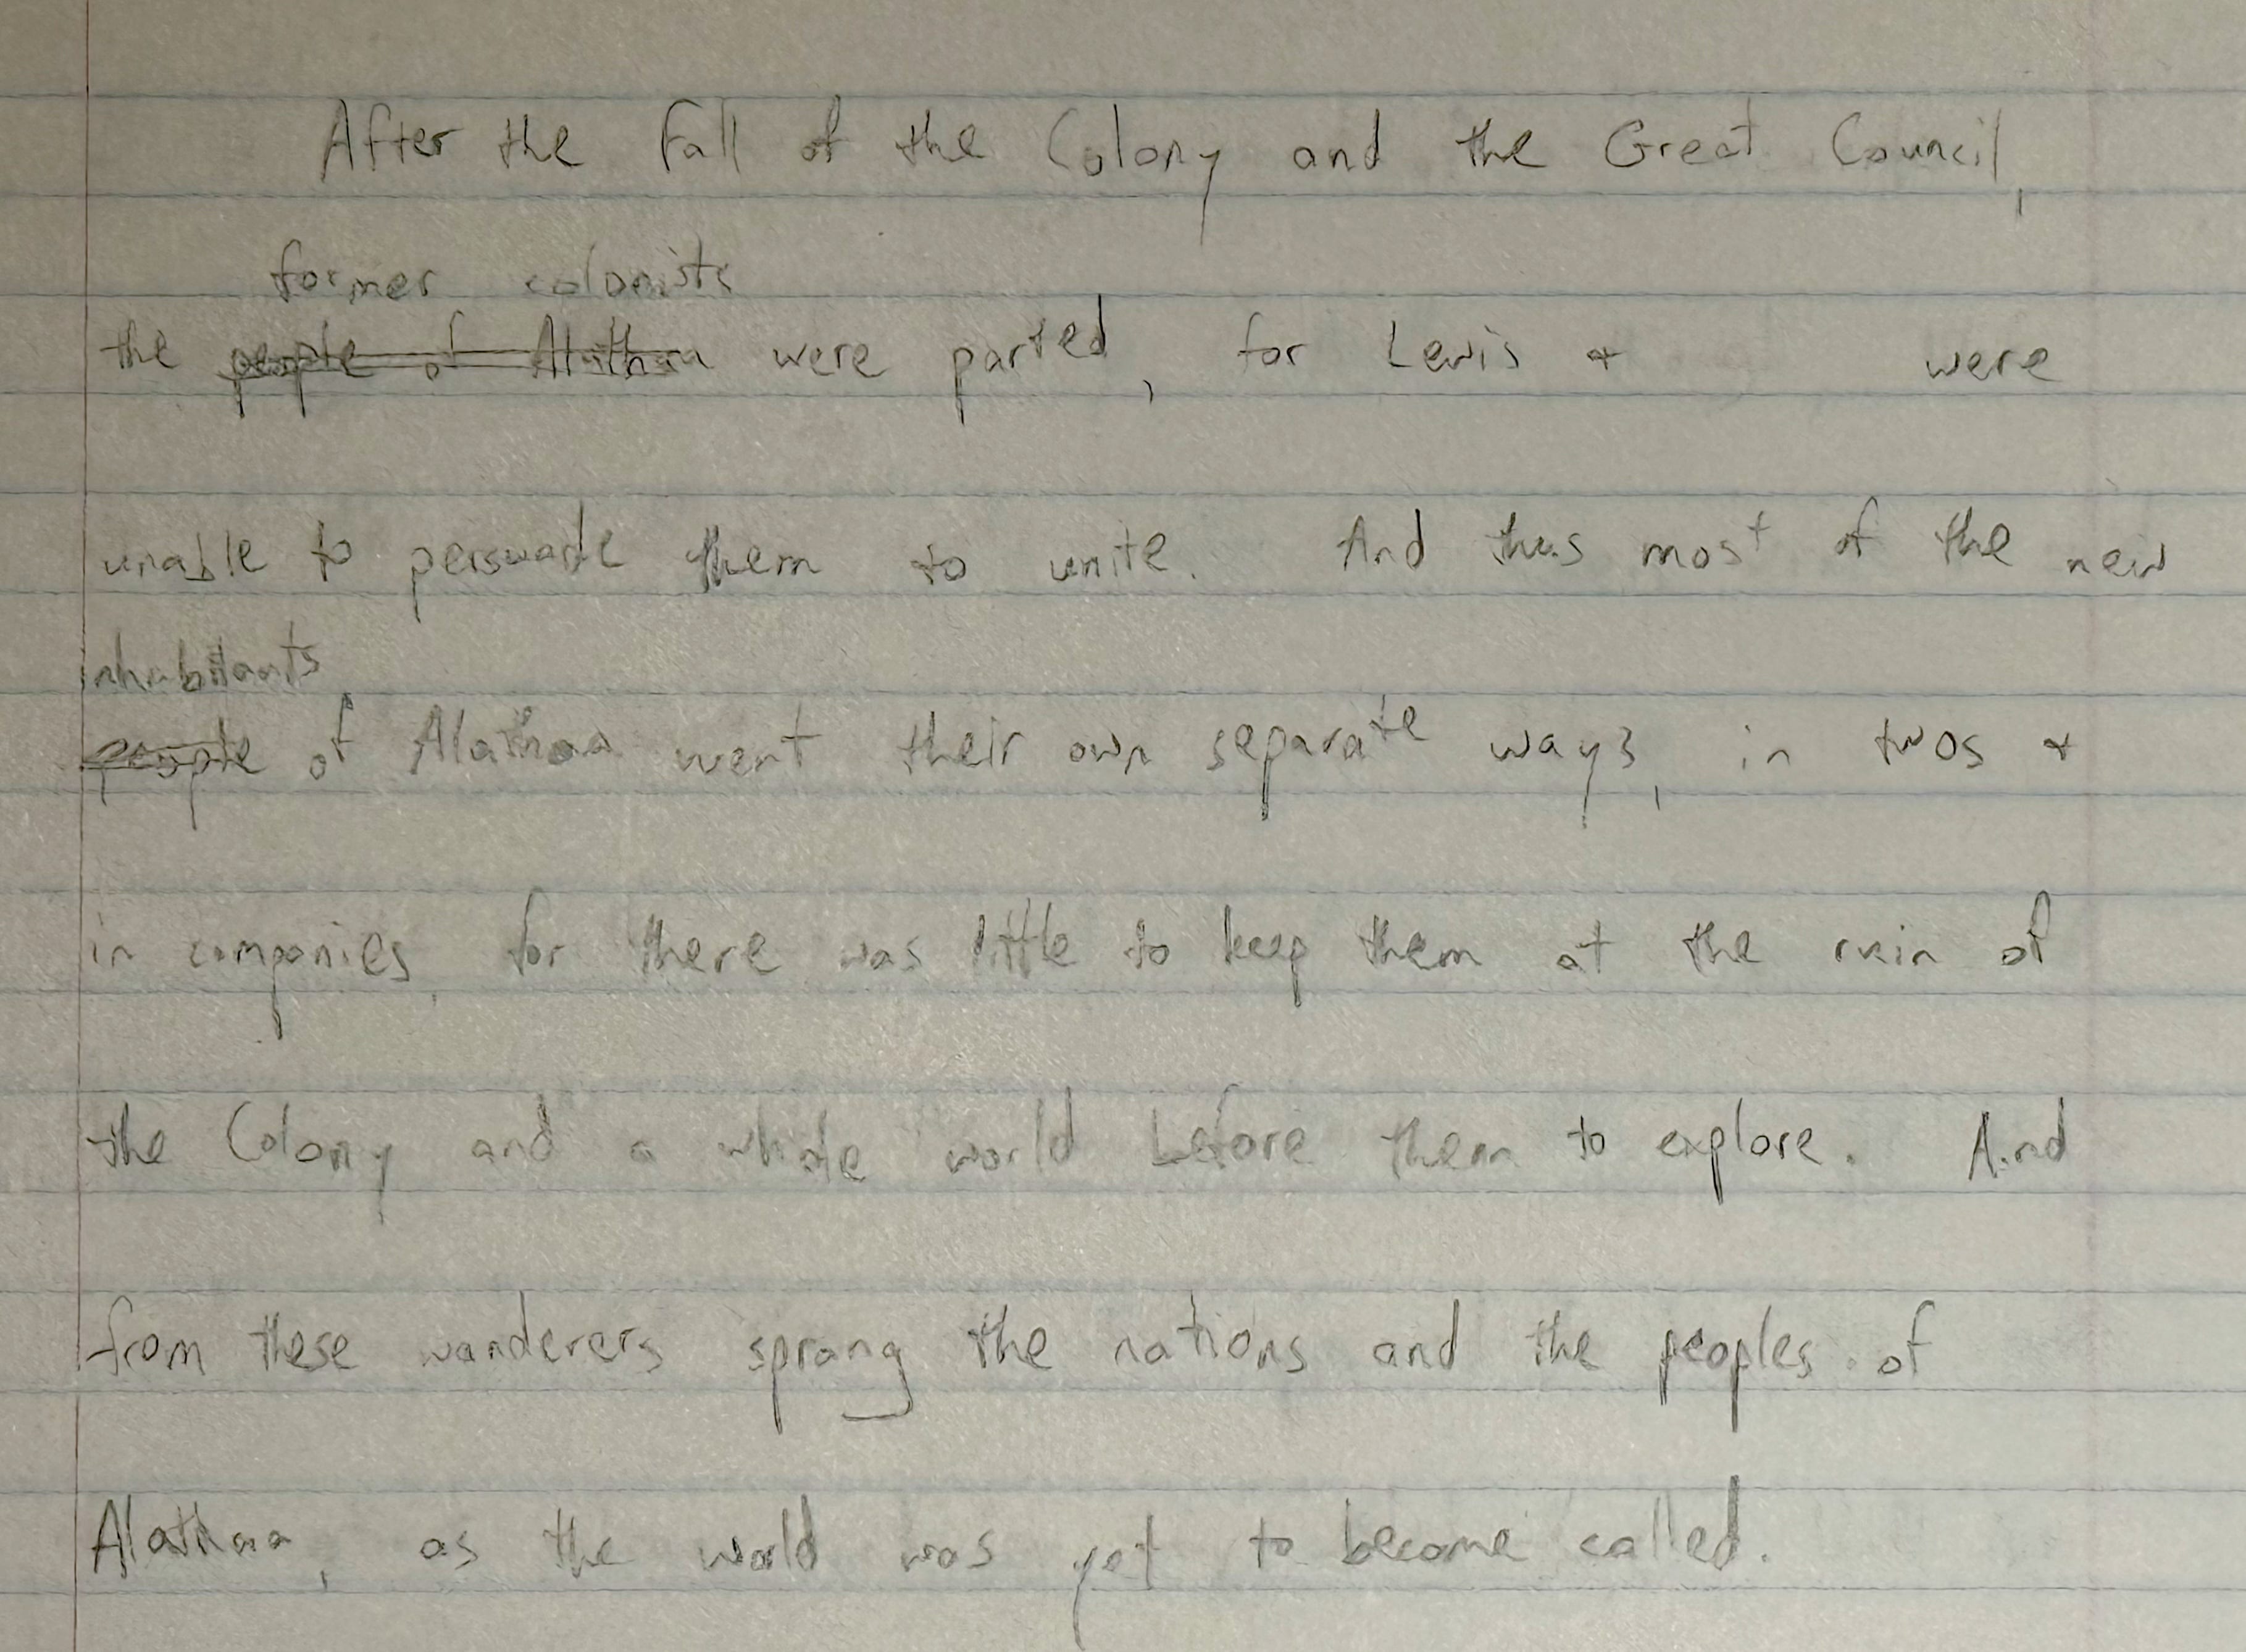 After the Fall of the Colony and the Great Council,
former colonists
the people of Alathaa were parted, for Lewis + were
unable to perswade them to unite. And thus most of the new
inhabitants
people of Alathaa went their own separate ways, in twos +
in companies, for there was little to keep them at the ruin of
the Colony and a whole world before them to explore. And
from these wanderers sprang the nations and the peoples of
Alathaa, as the world was yet to become called.